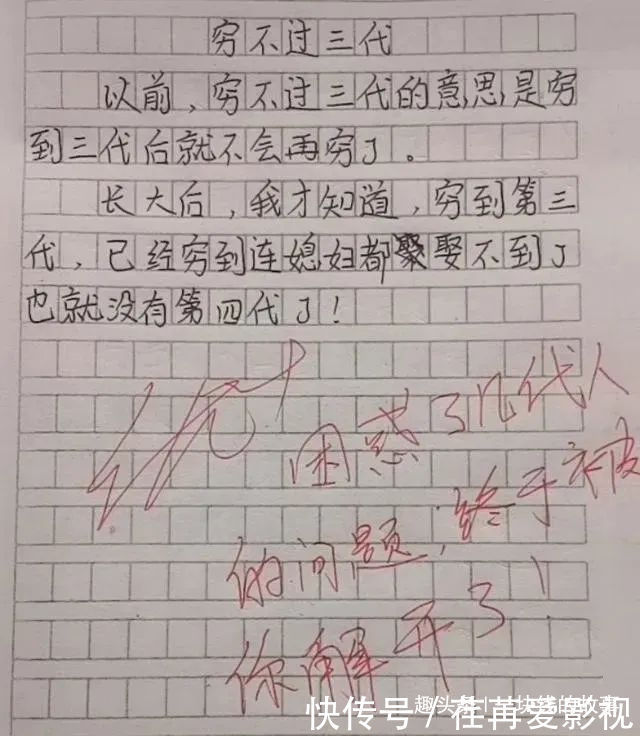 穷不过三代
以前，穷不过三代的意思是穷
到三代后就不会再穷了。
长大后，我才知道，穷到第三
代，已经穷到连媳妇都聚娶不到了
也就没有第四代了！
优+
困惑了几代人
的问题，终于被
你解开了！
趣头条
块钱的故事
快传号／在再爱影视